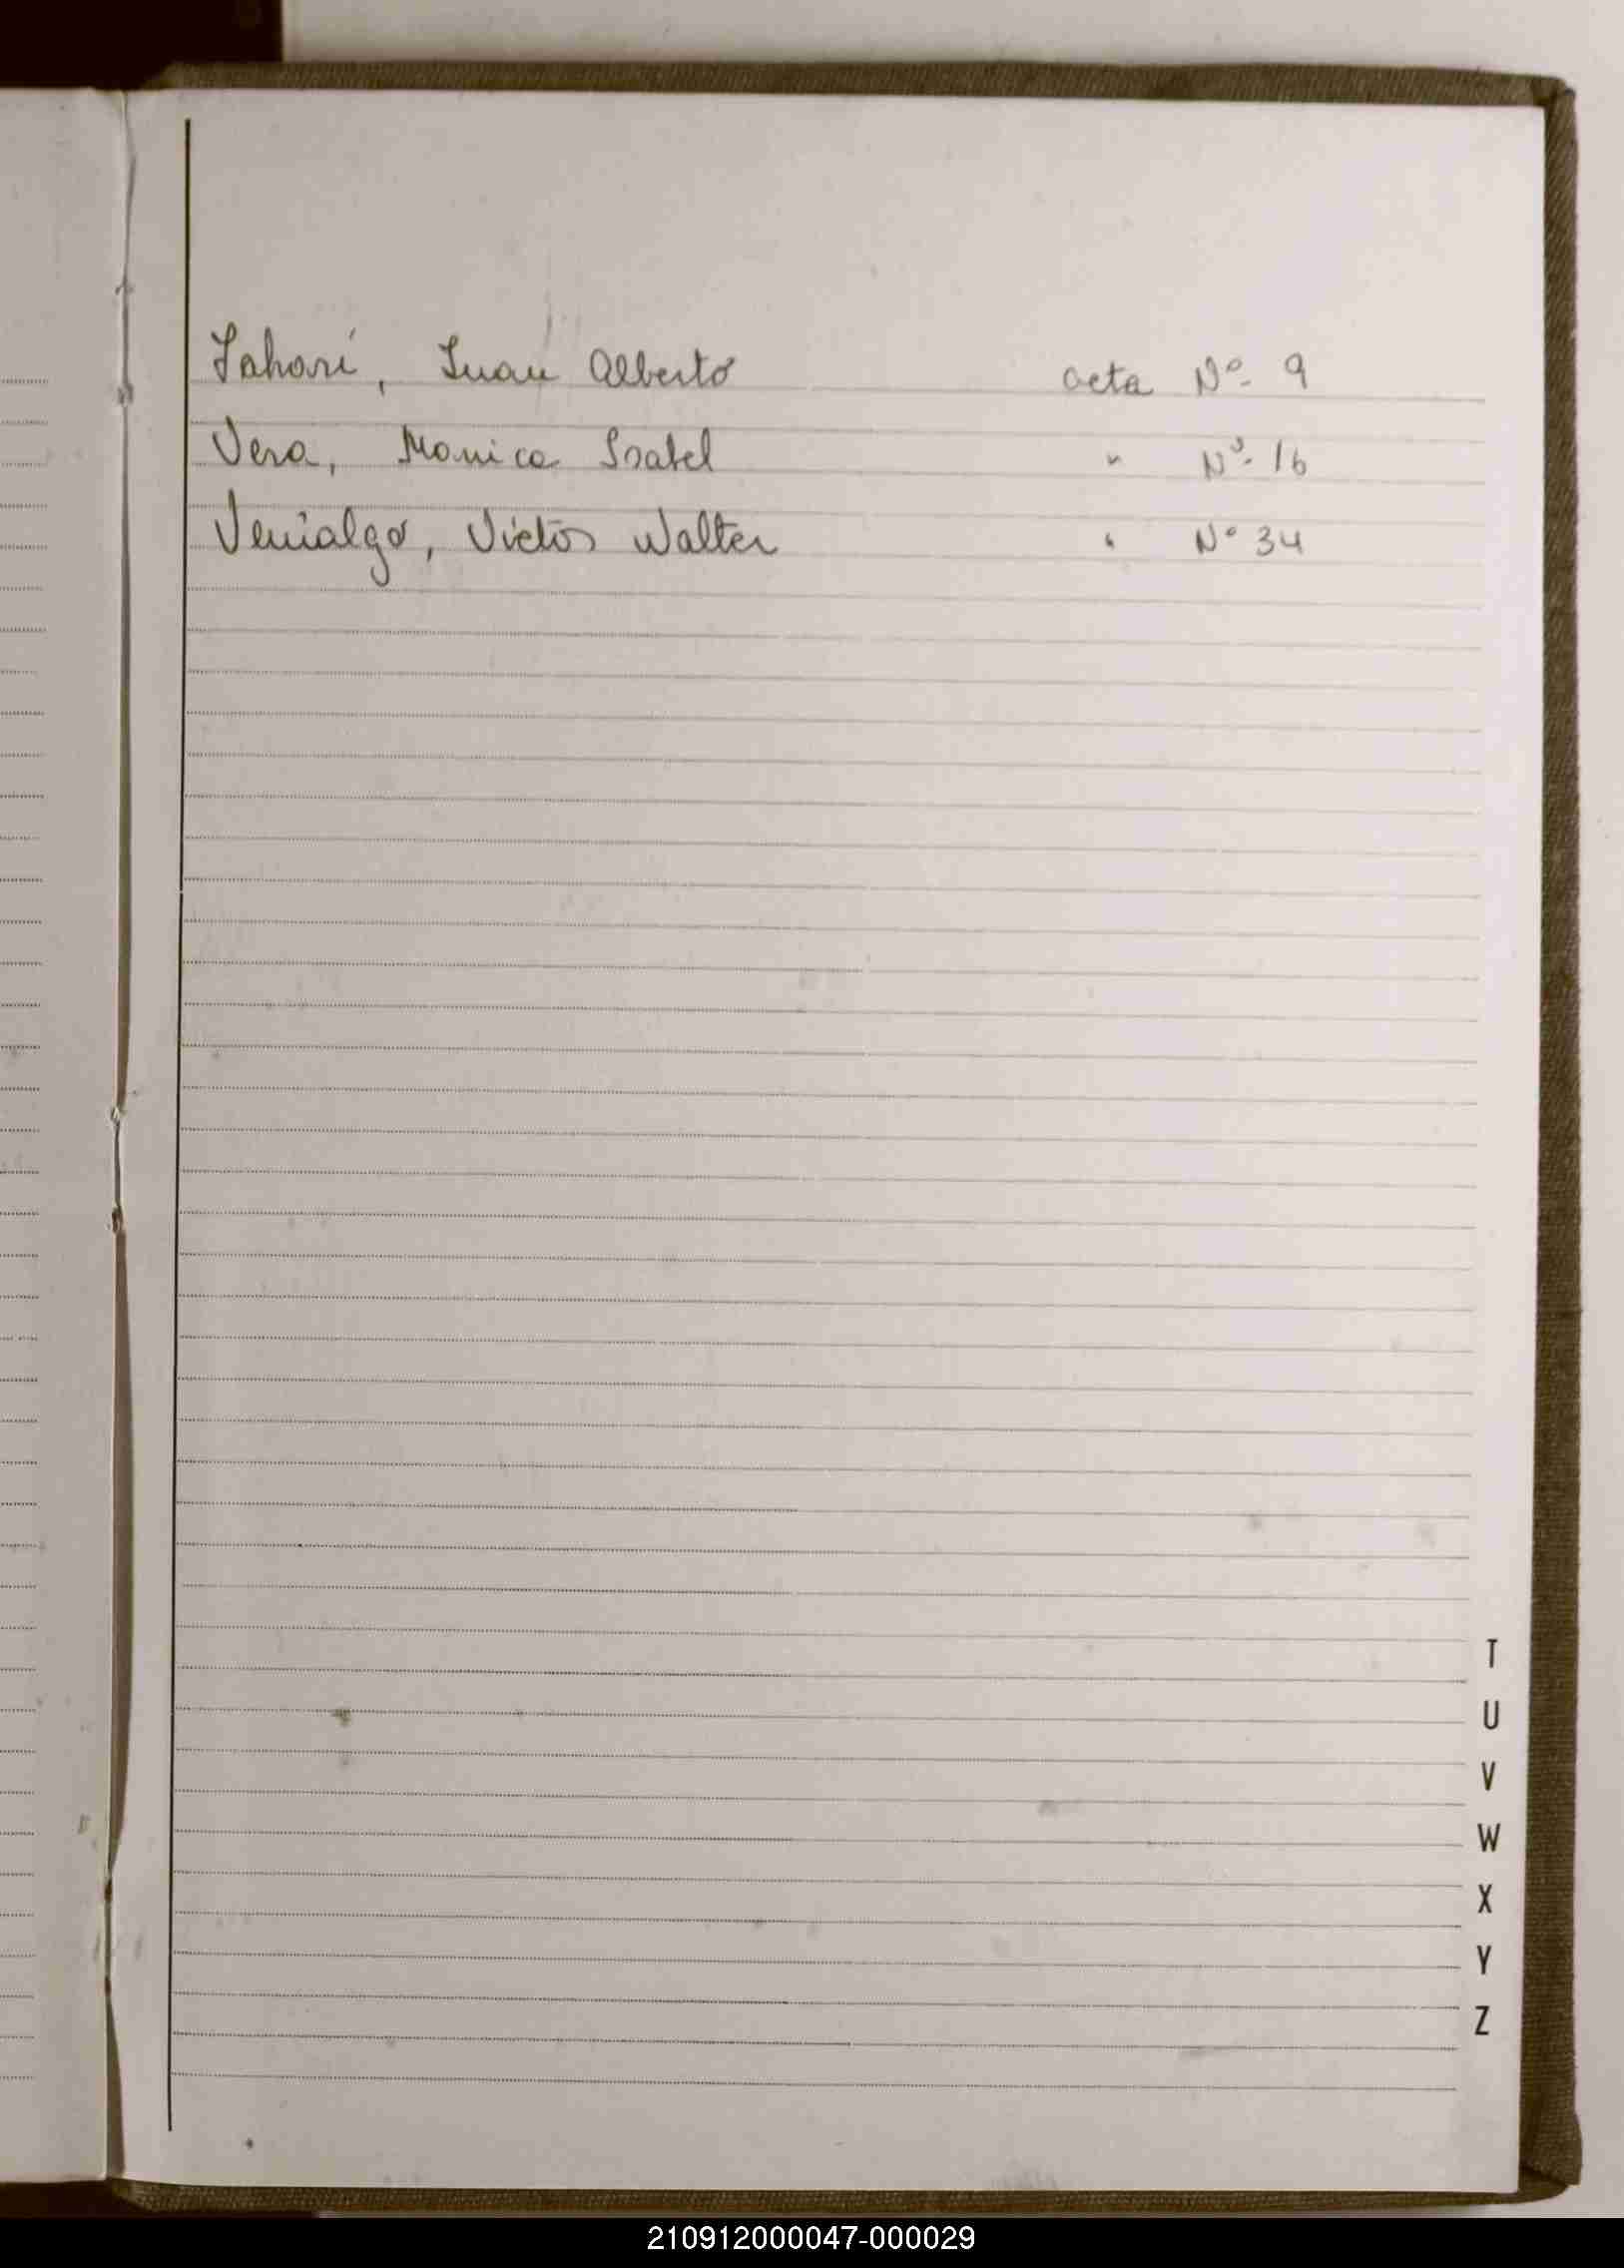 Juan Alberto acta Nº 9
Vera, Monica Isabel " Nº 16
Venialgo, Victor Walter " Nº 34
T
U
V
W
X
Y
Z
210912000047-000029